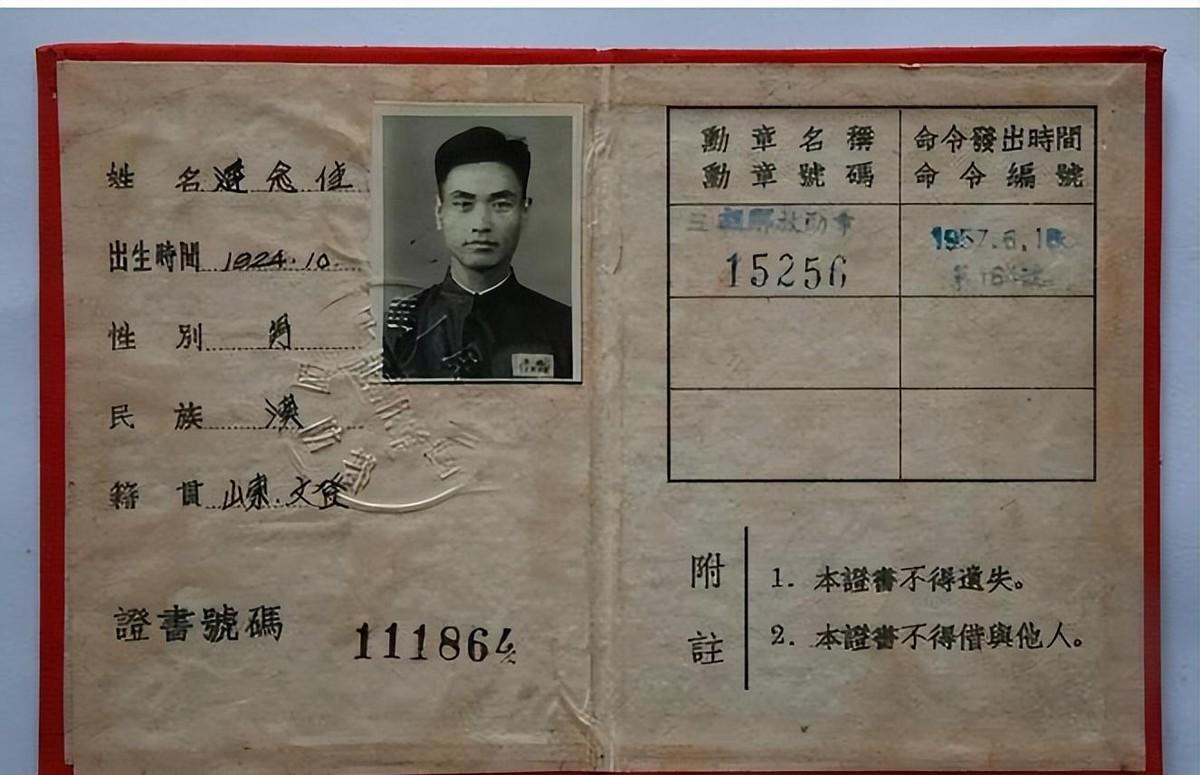 姓 名 念佳
出生時間 1924.10.
性 別 男
民 族 漢
籍 貫 山東.文登
證書號碼 111864
勳章名稱
勳章號碼
命令發出時間
命令編號
三級解放勳章
15256
1957.6.18
附註
1. 本證書不得遺失。
2. 本證書不得借與他人。